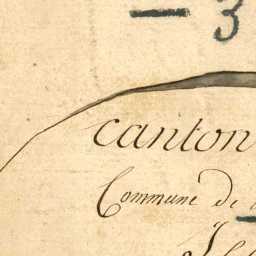 - 3
canton
Commune de